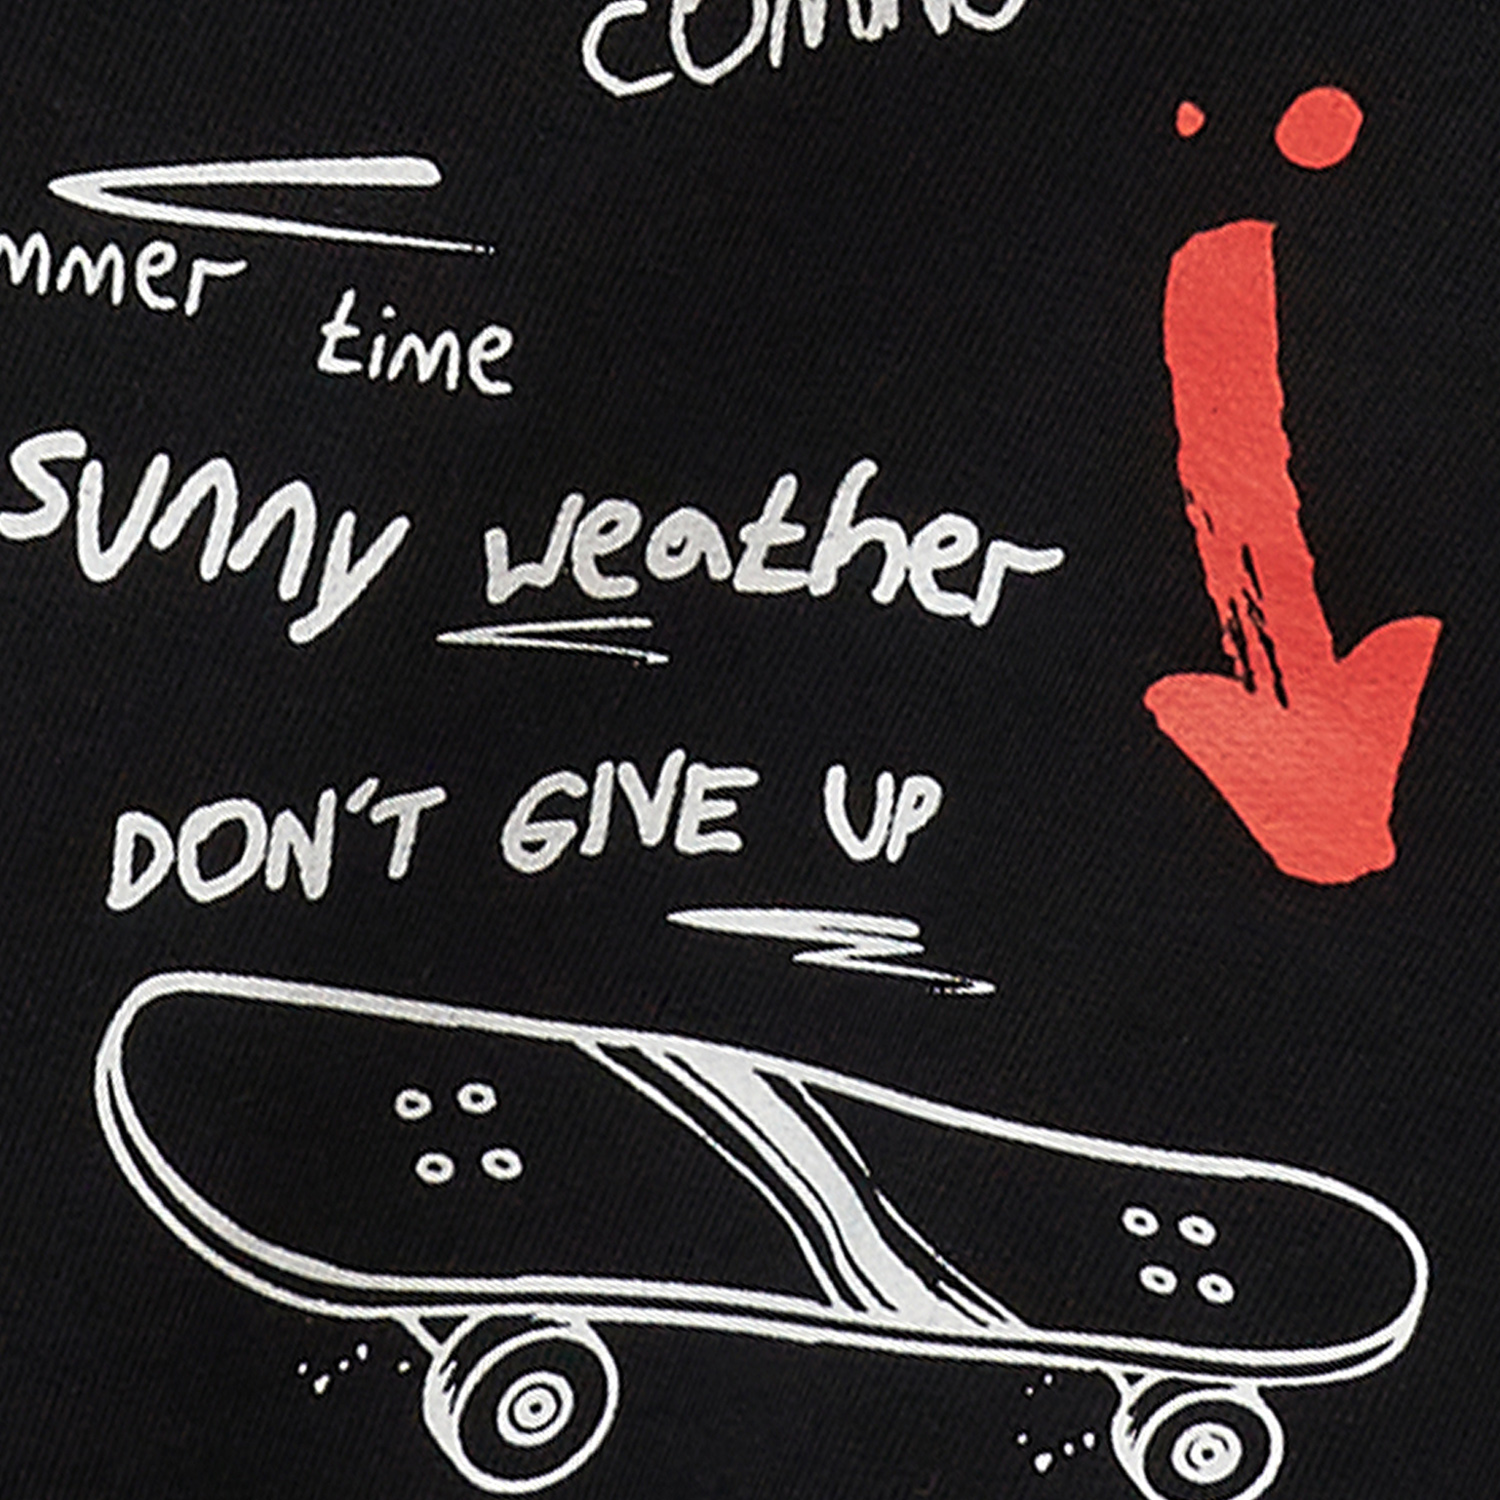 mmer time
sunny weather
DON'T GIVE UP